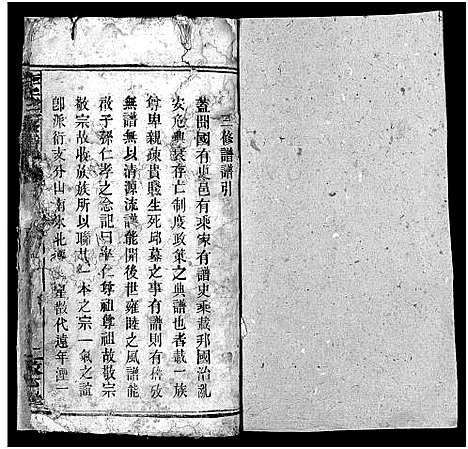 三修譜譜引
蓋聞國有史邑有乘家有譜史乘載邦國治亂
安危興衰存亡制度政葉之典譜也者載一族
尊卑親疎貴賤生死邱墓之事有譜則有稽攷
無譜無以清源流譜能開後世雍睦之風譜能
啟子孫仁孝之念記曰率仁尊祖尊祖故敬宗
敬宗故收族族所以聯其一本之宗一氣之誼
卽派衍支分山南水北 星散代遠年湮